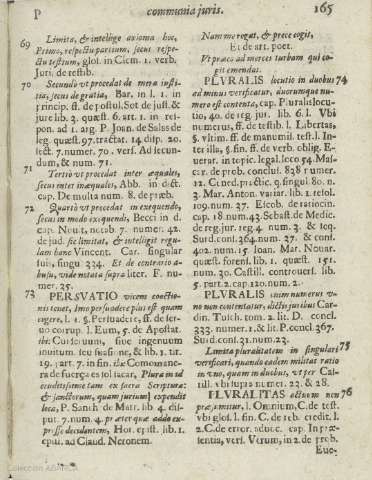 P communia juris. 165
69 Limita, & intellige axioma hoc,
Primo, respectu partium, secus respe-
ctu testium, glos. in Clem. 1. verb.
Juri, de testib.
70 Secundo ut procedat de mera justi-
tia, secus de gratia, Bar. in l. 1. in
princip. ff. de postul. Sot de just. &
jure lib. 3. quæst. 6. art. 1. in res-
pon. ad 1. arg. P. Joan. de Salas de
leg. quæst. 97. tractat. 14. disp. 20.
sect. 7. numer. 70. vers. Ad secun-
dum, & num. 71.
71 Tertio ut procedat inter æquales,
secus inter inæquales, Abb. in dict.
cap. De multa num. 8. de præb.
72 Quarto ut procedat in exequendo,
secus in modo exequendi, Becci in d.
cap. Novit, notab. 7. numer. 42.
de jud. sic limitat, & intelligit regu-
lam hanc Vincent. Car. singular
suis, singu. 334. Et de contrario a-
busu, vide notata supra liter. F. nu-
mer. 35.
73 PERSUATIO vicem coactio-
nis tenet, imo persuadere plus est quam
cogere, l. 1. §. Persuadere, ff. de ser-
vo corrup. l. Eum, 5. de Apostat.
ibi: Custodum, sive ingenuum
invitum, seu suasione, & lib. 1. tit.
19. part. 7. in fin. ibi: Como mane-
ra de fuerça es sosacar, Plura in id
eruditissime tam ex sacra Scriptura:
& sanctorum, quam jurium expendit
loca, P. Sanch. de Matr. lib. 4. dis-
put. 7. num. 4. præter quæ addo ex-
presse decidentem, Hor. epist. lib. 1.
epist. ad Claud. Neronem.
Nam me rogat, & prece cogit,
Et de art. poet.
Ut præco ad merces turbam qui co-
git emendas.
PLURALIS locutio in duobus 74
ad minus verificatur, duorumque nu-
mero est contenta, cap. Pluralis locu-
tio, 40. de reg. jur. lib. 6. l. Ubi
numerus, ff. de testib. l. Libertas,
§. ultim. ff. de manumis. test. l. Inter
illa, §. fin. ff. de verb. oblig. E-
verar. in topic. legal. loco 54. Mas-
car. de prob. conclus. 828 numer.
12. Cened. practic. 9. singul. 80. n.
3. Mar. Anton. variar. lib. 1. resol.
109. num. 27. Escob. de ratiocin.
cap. 18. num. 43. Sebast. de Medic.
de reg. jur. reg. 4. num. 3. & seq.
Surd. cons. 364. num. 27. & cons.
402. num. 15. Joan. Mar. Novar.
quæst. forens. lib. 1. quæst. 151.
num. 30. Castill. controvers. lib.
5. part. 2. cap. 120. num. 2.
PLURALIS enim numerus u-
no non contentatur, dictis juribus Car-
din. Tusch. tom. 2. lit. D. concl.
333. numer. 1. & lit. P. concl. 367.
Surd. cons. 31. num. 23.
Limita pluralitatem in singulari 75
verificari, quando eadem militat ratio
in uno, quam in duobus, ut per Cas-
till. ubi supra numer. 22. & 28.
PLURALITAS actuum non 76
præsumitur, l. Omnium, C. de test.
ubi glos. l. fin. C. de reb. credit. l.
2. C. de error. advoc. cap. In præ-
sentia, vers. Verum, in 2. de prob.
Eve-
Colección ABARCA